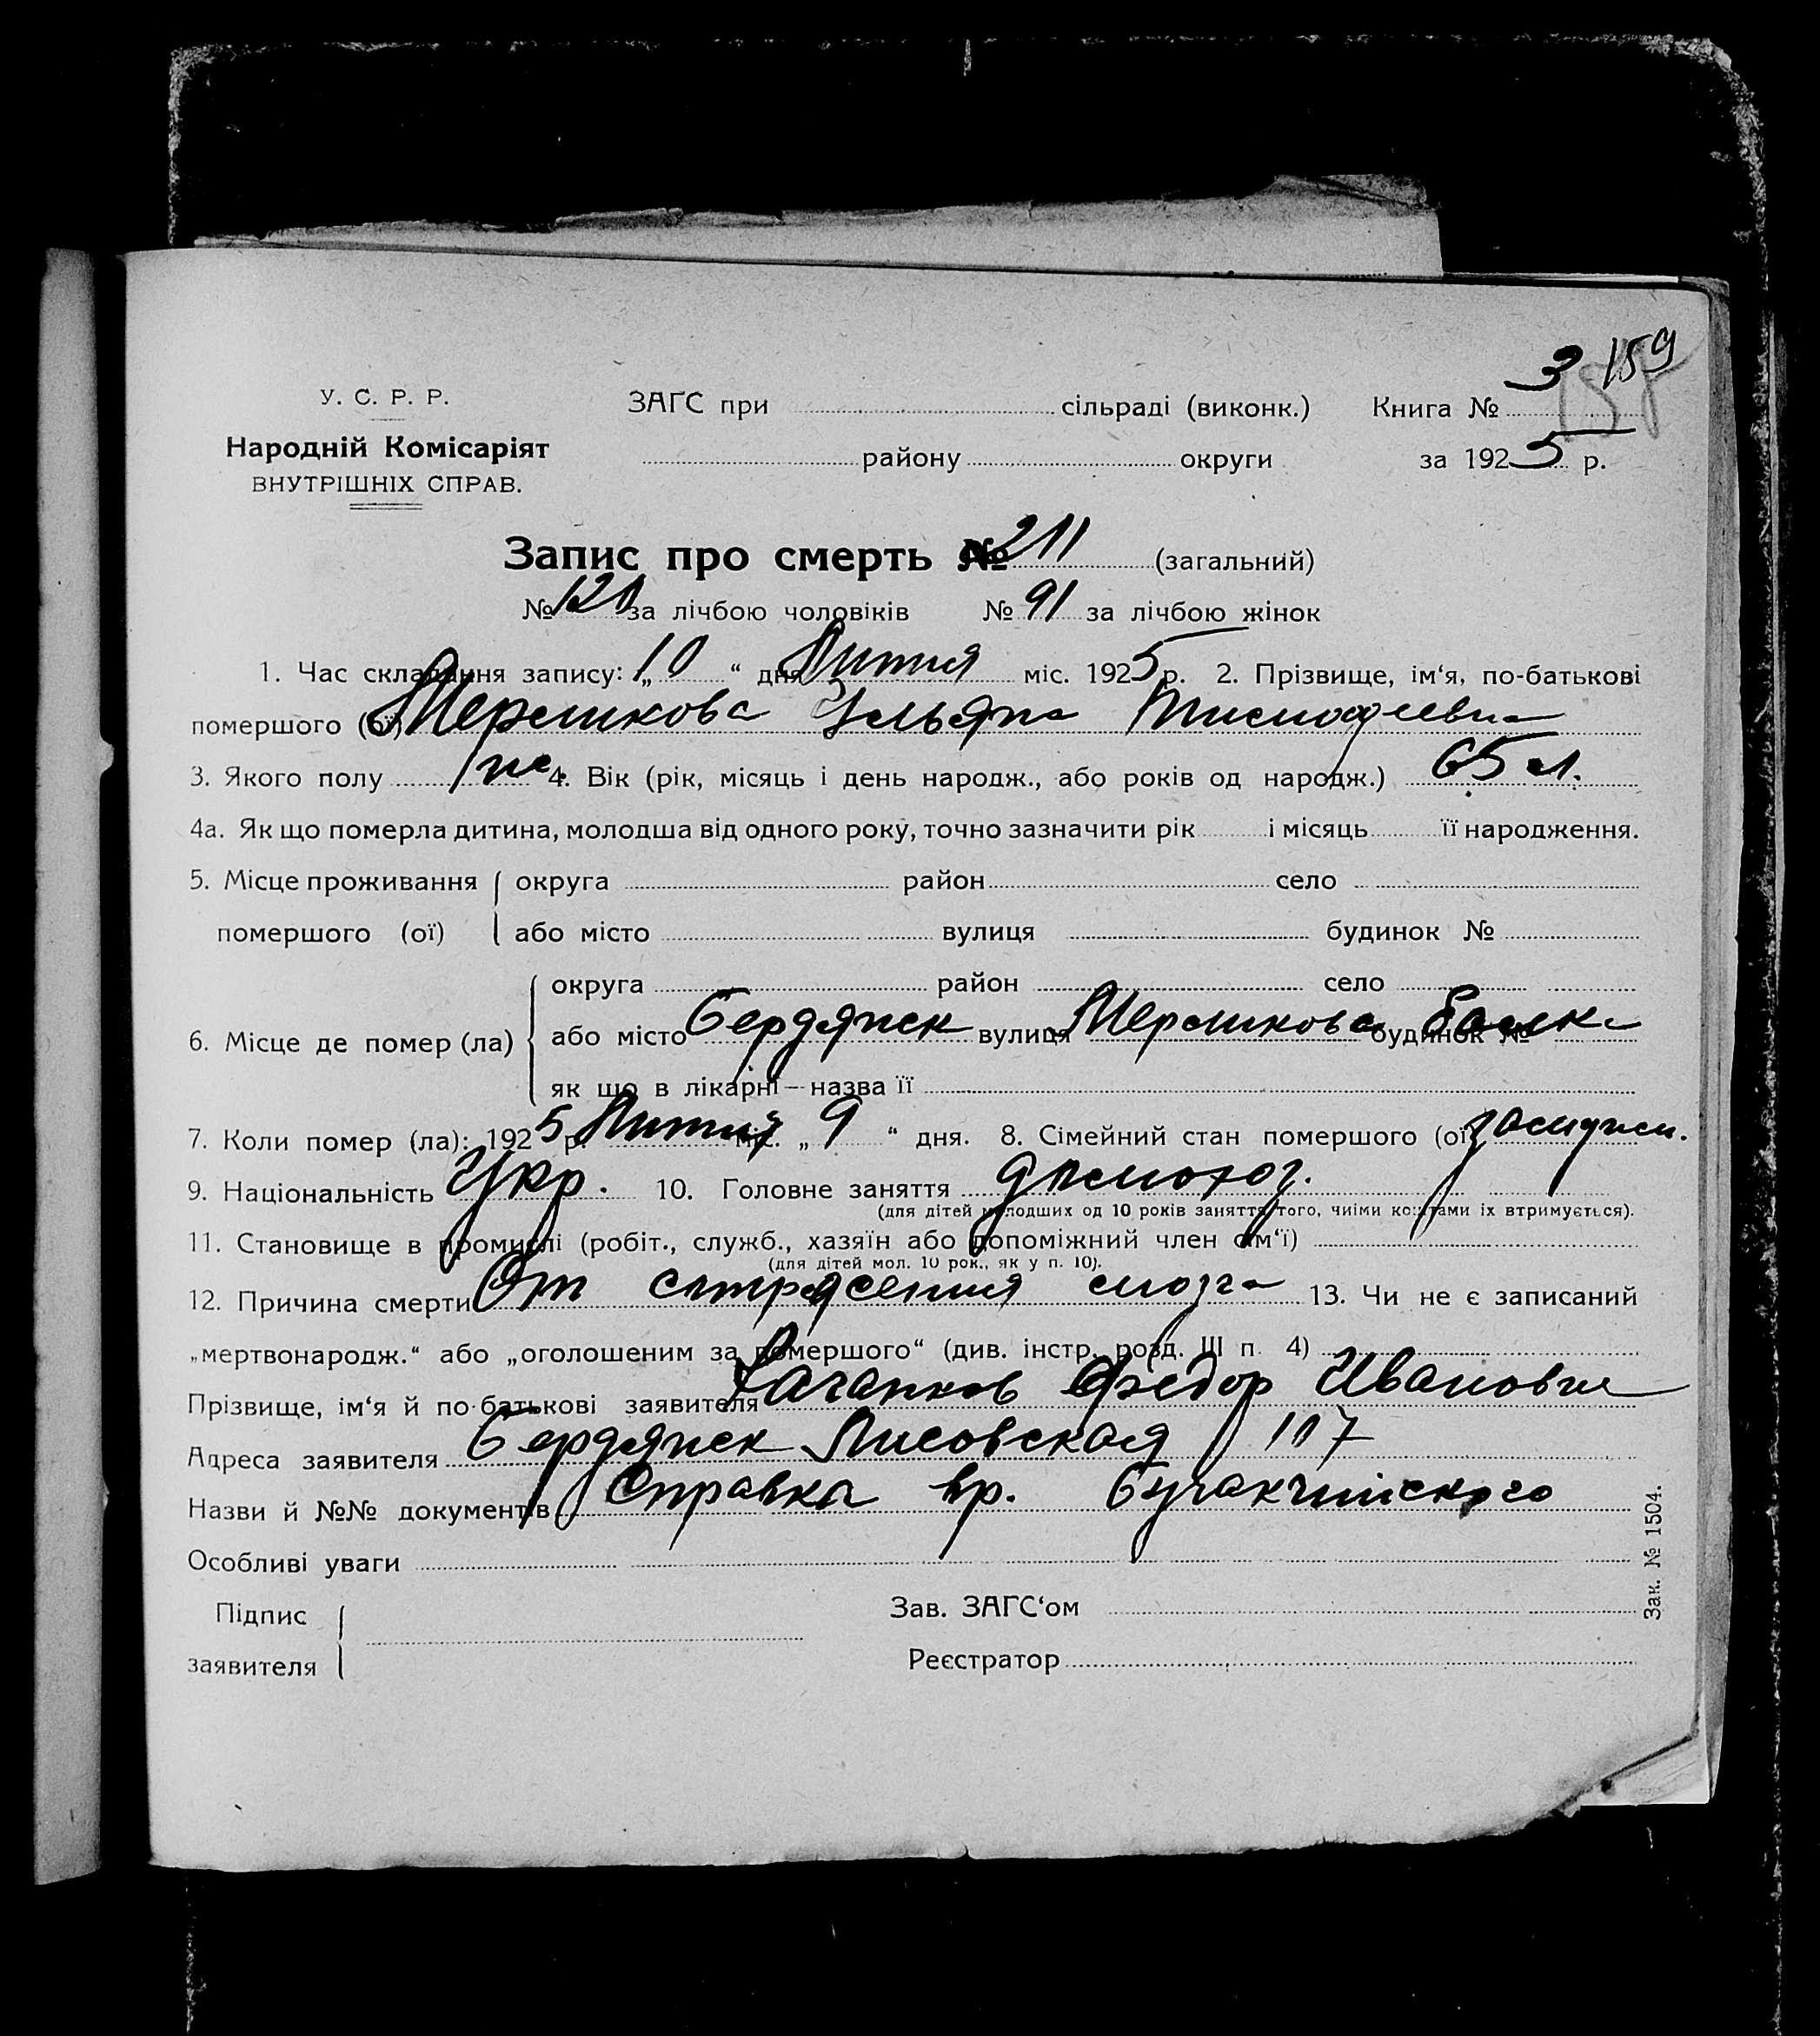 3 159
158
У. С. Р. Р. ЗАГС при сільраді (виконк.) Книга №
Народній Комісаріят
ВНУТРІШНІХ СПРАВ.
району округи за 1925 р.
Запис про смерть № 211 (загальний)
№ 120 за лічбою чоловіків № 91 за лічбою жінок
1. Час складання запису: „10“ дня Липня міс. 1925 р. 2. Прізвище, ім‘я, по-батькові
помершого (ої) Мерликова Ульяна Тимофеевна
3. Якого полу 4. Вік (рік, місяць і день народж., або років од народж.) 65 л.
4а. Як що померла дитина, молодша від одного року, точно зазначити рік і місяць її народження.
5. Місце проживання округа район село
помершого (ої) або місто вулиця будинок №
округа район село
6. Місце де помер (ла) або місто Бердянск вулиця Мерликова Балка будинок №
як що в лікарні — назва її
7. Коли помер (ла): 1925 р. Липня „9“ дня. 8. Сімейний стан помершого (ої) замужн.
9. Національність Укр. 10. Головне заняття домохоз.
(для дітей молодших од 10 років заняття того, чиїми коштами їх втримується).
11. Становище в промислі (робіт., служб., хазяїн або допоміжний член сім‘ї)
(для дітей мол. 10 рок., як у п. 10).
12. Причина смерти От сотрясения мозга 13. Чи не є записаний
„мертвонародж.“ або „оголошеним за помершого“ (див. інстр. розд. III п. 4)
Прізвище, ім‘я й по-батькові заявителя Федор Иванович
Адреса заявителя Бердянск Лисовская 117
Назви й №№ документів Справка вр.
Особливі уваги
Підпис Зав. ЗАГС‘ом
заявителя Реєстратор
Зак. № 1504.